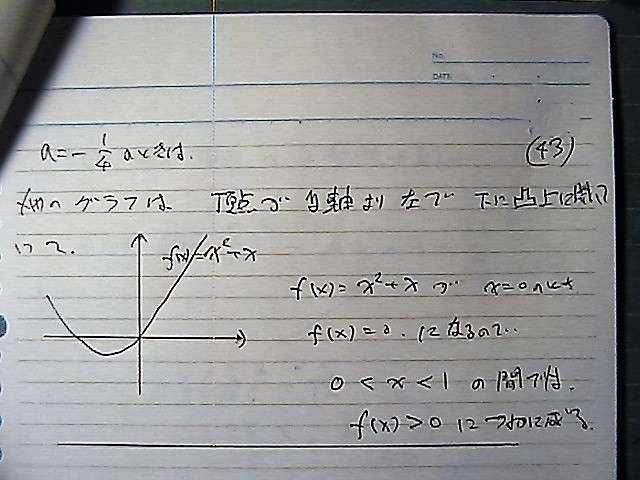 No.
DATE
a = -1/4 のときは. (43)
f(x)のグラフは 頂点が y軸より左で 下に凸上に開いて
いて.
f(x)=x²+x
f(x)=x²+x が x=0のとき
f(x)=0. になるので..
0<x<1 の間では.
f(x)>0 につねに成る.